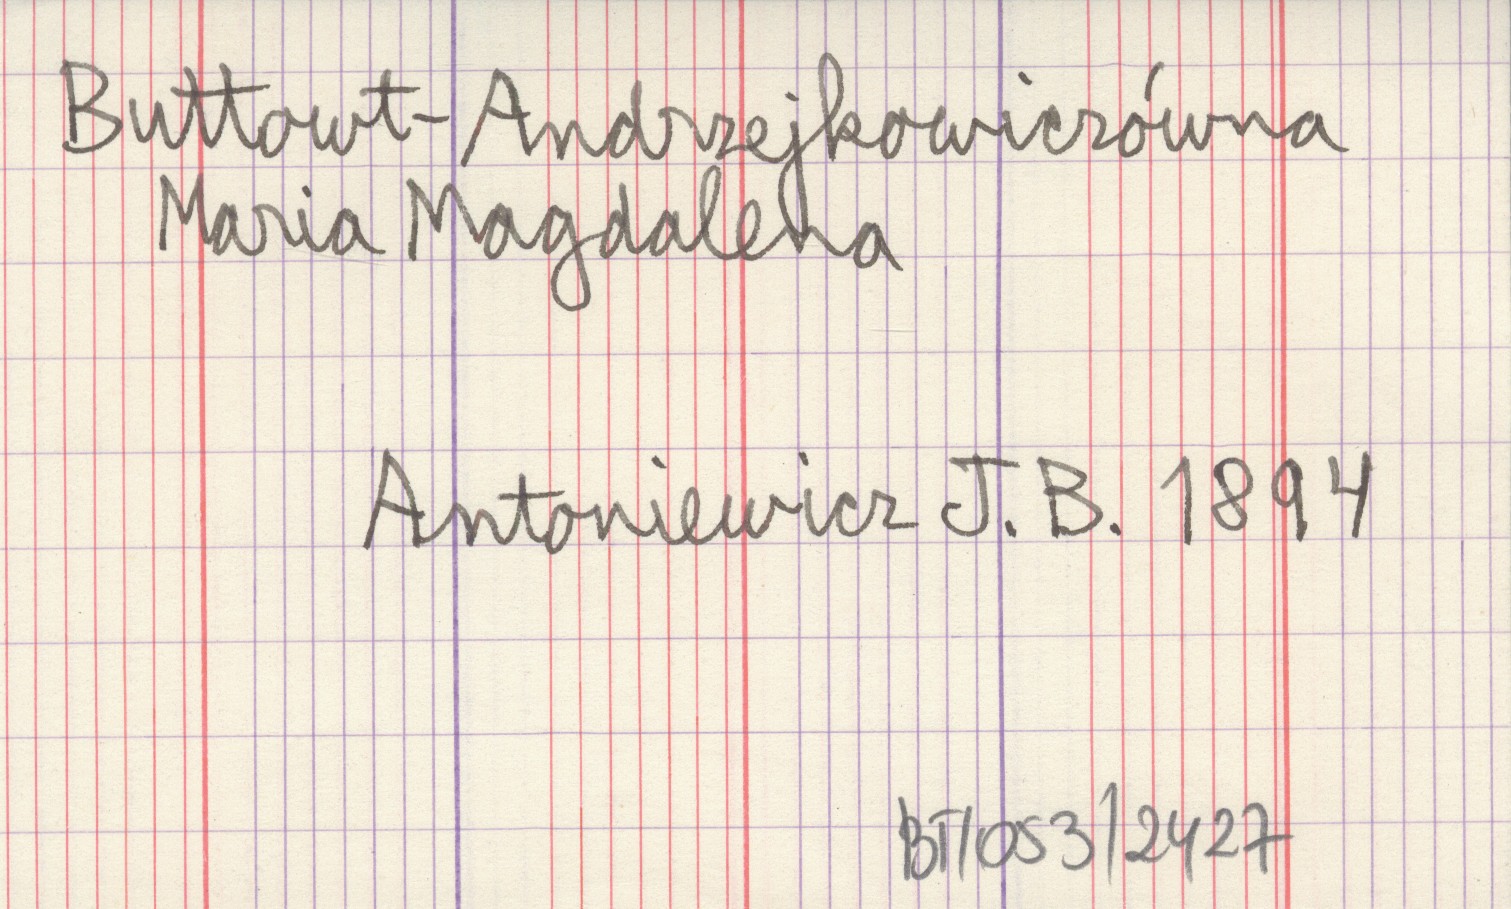 Buttowt-Andrzejkowiczówna
Maria Magdalena
Antoniewicz J. B. 1894
BT/053/2427